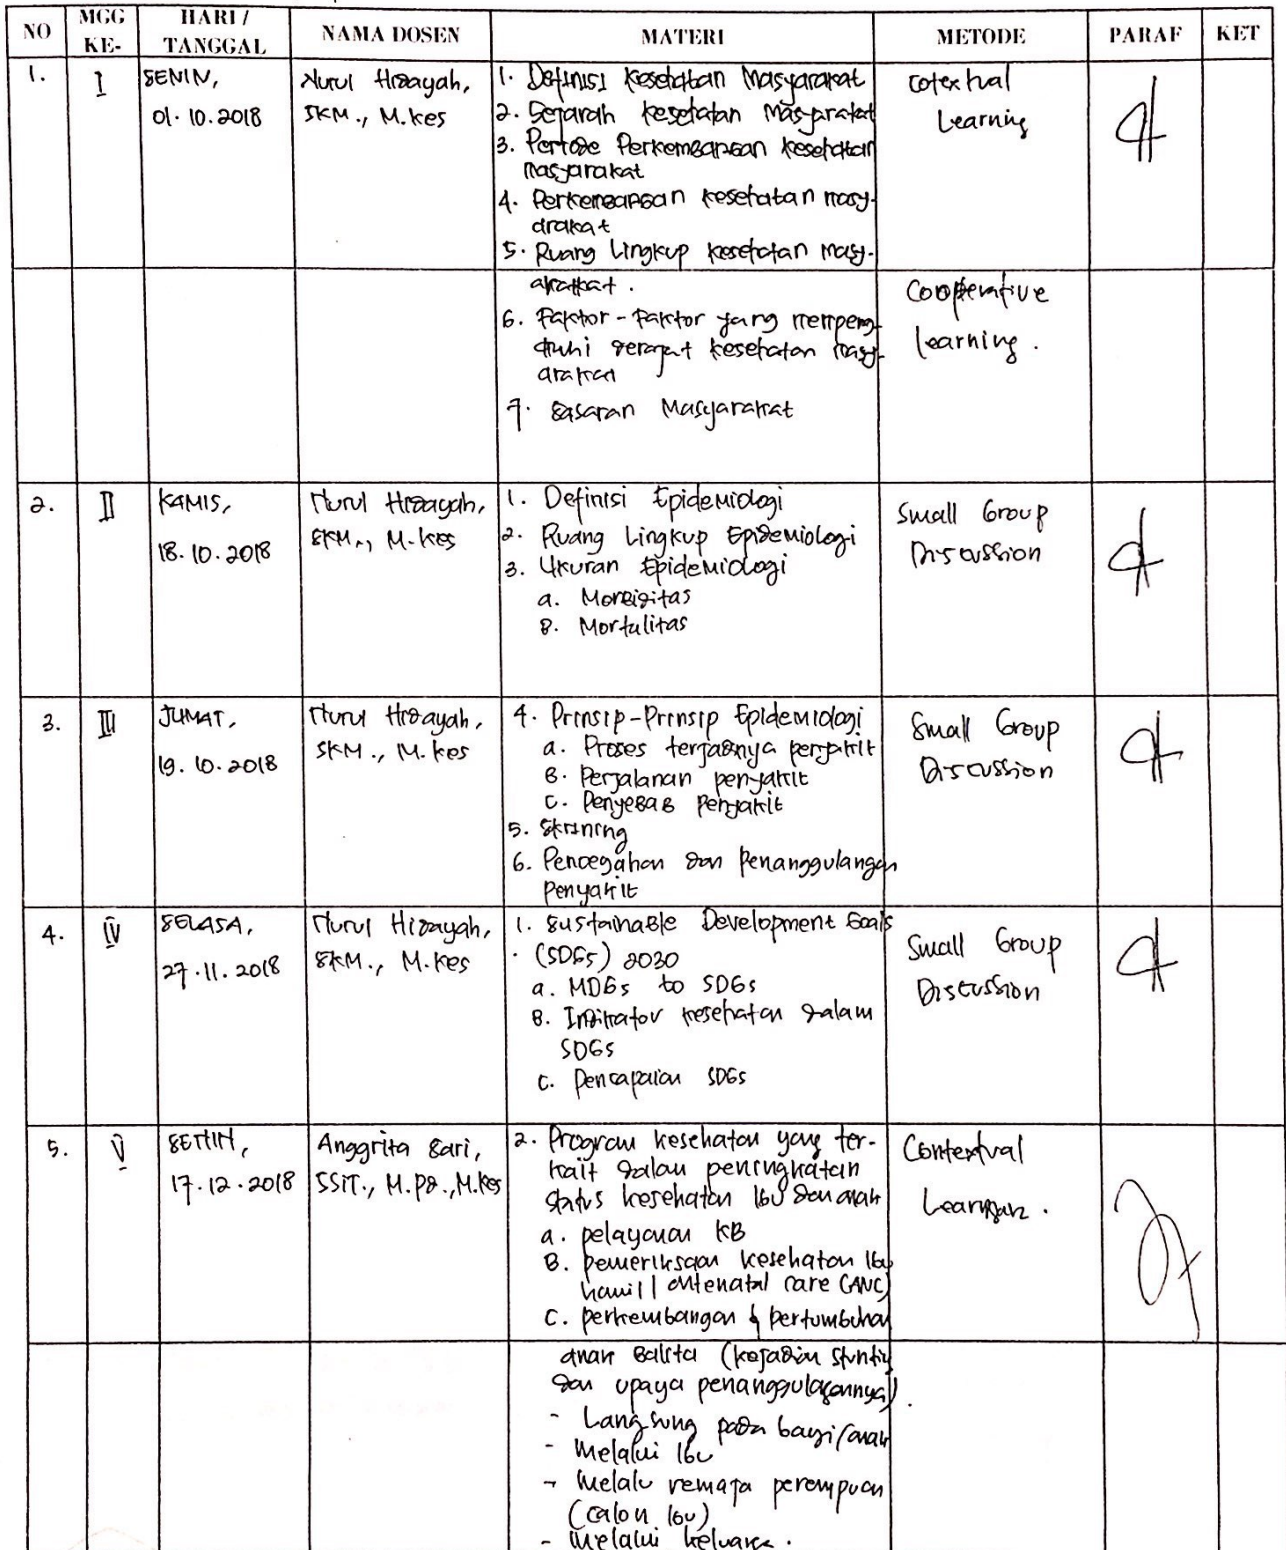 NO MGG KE- HARI / TANGGAL NAMA DOSEN MATERI METODE PARAF KET
1. I SENIN, 01.10.2018 Nurul Hidayah, SKM., M.kes
1. Definisi Kesehatan Masyarakat
2. Sejarah kesehatan Masyarakat
3. Periode Perkembangan kesehatan
masyarakat
4. Perkembangan kesehatan masy-
arakat
5. Ruang Lingkup kesehatan masy-
arakat.
6. Faktor-Faktor yang mempeng-
aruhi derajat kesehatan masy-
arakat
7. Sasaran Masyarakat
Cotextual
Learning
Cooperative
learning.
2. II KAMIS, 18.10.2018 Nurul Hidayah, SKM., M.kes
1. Definisi Epidemiologi
2. Ruang Lingkup Epidemiologi
3. Ukuran Epidemiologi
a. Morbiditas
B. Mortalitas
Small Group
Discussion
3. III JUMAT, 19.10.2018 Nurul Hidayah, SKM., M.kes
4. Prinsip-Prinsip Epidemiologi
a. Proses terjadinya penyakit
B. Perjalanan penyakit
C. Penyebab Penyakit
5. Skrining
6. Pencegahan dan Penanggulangan
Penyakit
Small Group
Discussion
4. IV SELASA, 27.11.2018 Nurul Hidayah, SKM., M.Kes
1. Sustainable Development Goals
(SDGs) 2030
a. MDGs to SDGs
B. Indikator kesehatan dalam
SDGs
C. Pencapaian SDGs
Small Group
Discussion
5. V SENIN, 17.12.2018 Anggrita Sari, SSiT., M.Pd., M.Kes
2. Program kesehatan yang ter-
kait dalam peningkatan
status kesehatan Ibu dan anak
a. pelayanan KB
B. pemeriksaan kesehatan Ibu
hamil / antenatal care (ANC)
C. perkembangan & pertumbuhan
anak Balita (kejadian stunting
dan upaya penanggulangannya).
- Langsung pada bayi/anak
- Melalui Ibu
- Melalu remaja perempuan
(calon Ibu)
- Melalui keluarga.
Contextual